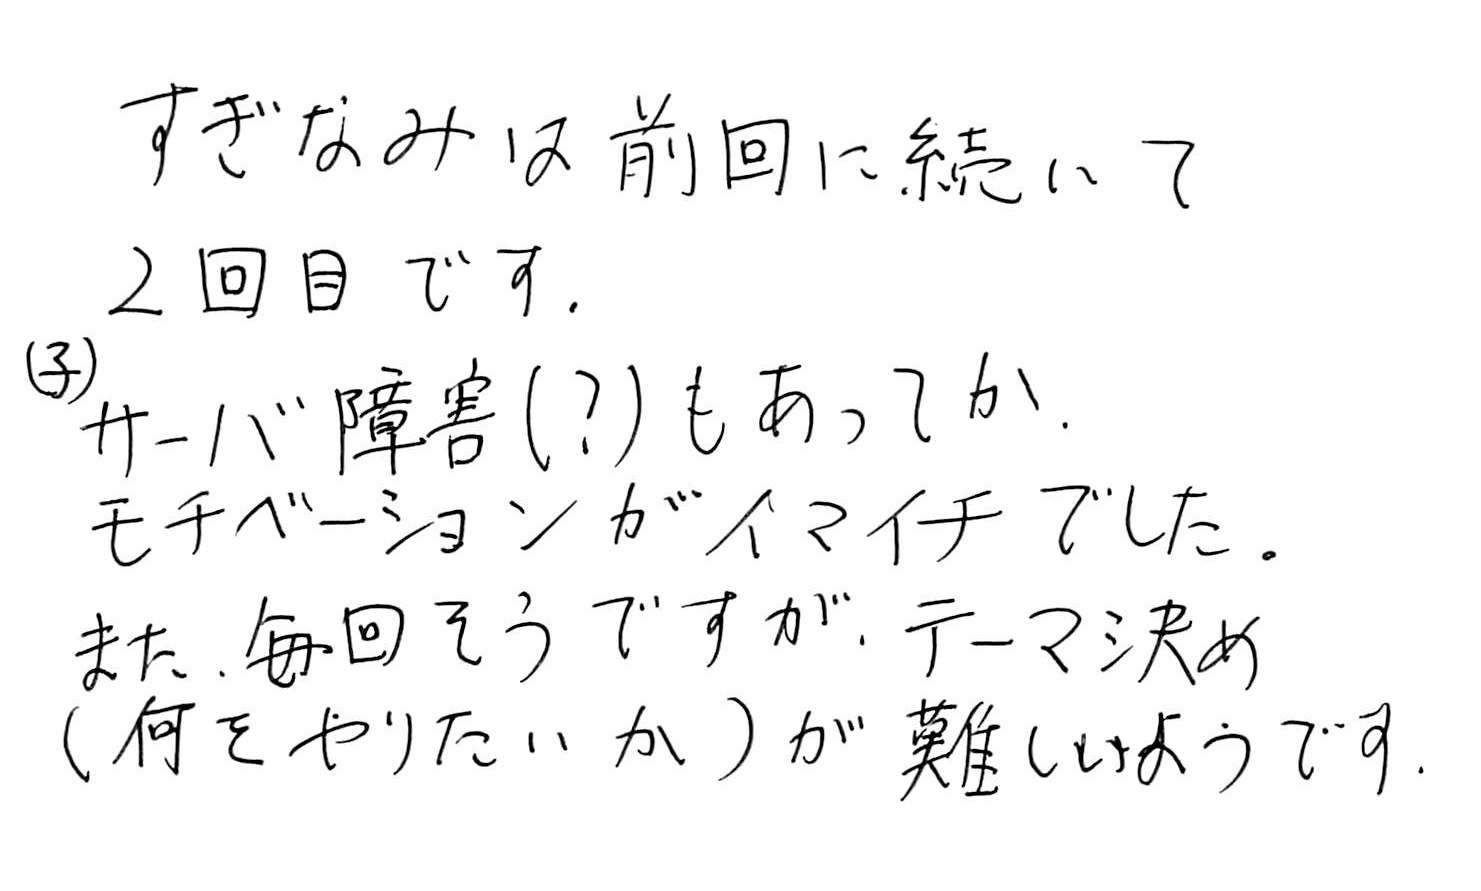 すぎなみは前回に続いて
2回目です.
(子)
サーバ障害(?)もあってか.
モチベーションがイマイチでした.
また.毎回そうですが.テーマ決め
(何をやりたいか)が難しいようです.